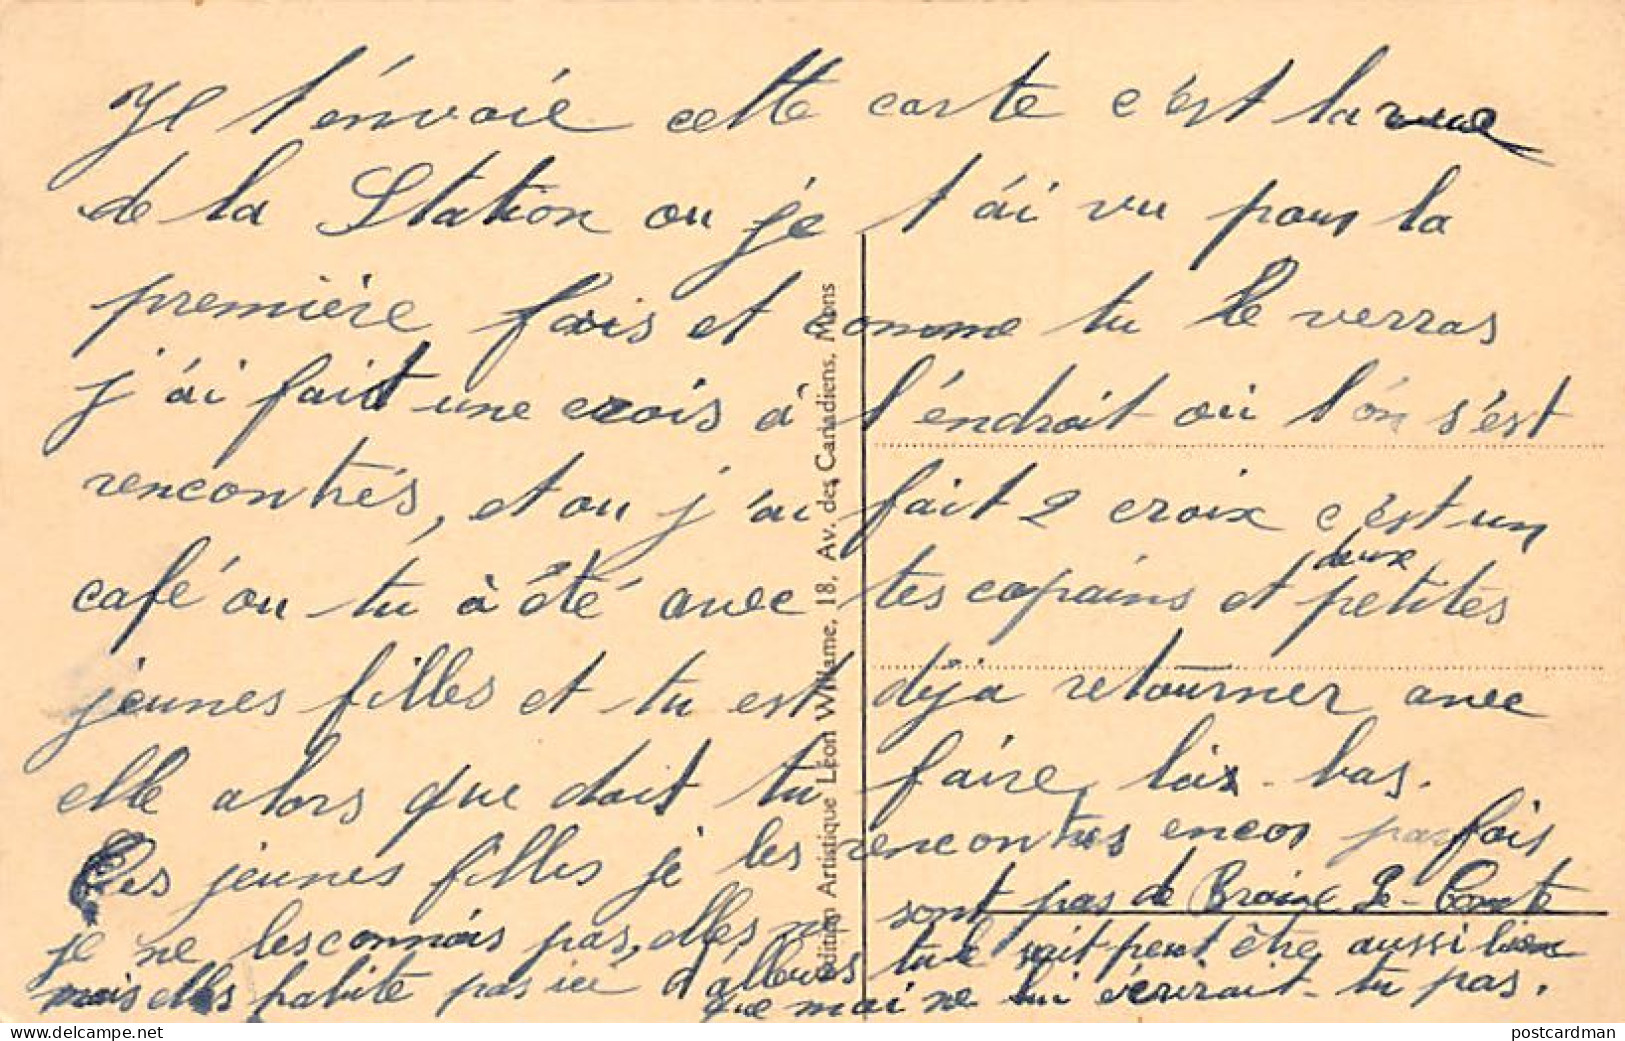 Je t'énvoié cette carte c'est la rue
de la Station ou je t'ái vu pour la
première fois et comme tu le verras
j'ái fait une crois à l'éndroit ou l'on s'est
rencontrés, et ou j'ai fait 2 croix c'est un
café ou tu à été avec tes copains et deux petites
jeunes filles et tu est déja retourner avec
elle alors que doit tu faire lais-bas.
Ces jeunes filles je les rencontres encor pas fois
je ne les connais pas, elles ne sont pas de Braine Le-Comte
mais elles habite pas ici d'álleurs tu le sait peut être aussi bien
que moi ne lui écrirait-tu pas.
Edition Artistique Léon Willame, 18, Av. des Canadiens, Mons
www.delcampe.net
postcardman